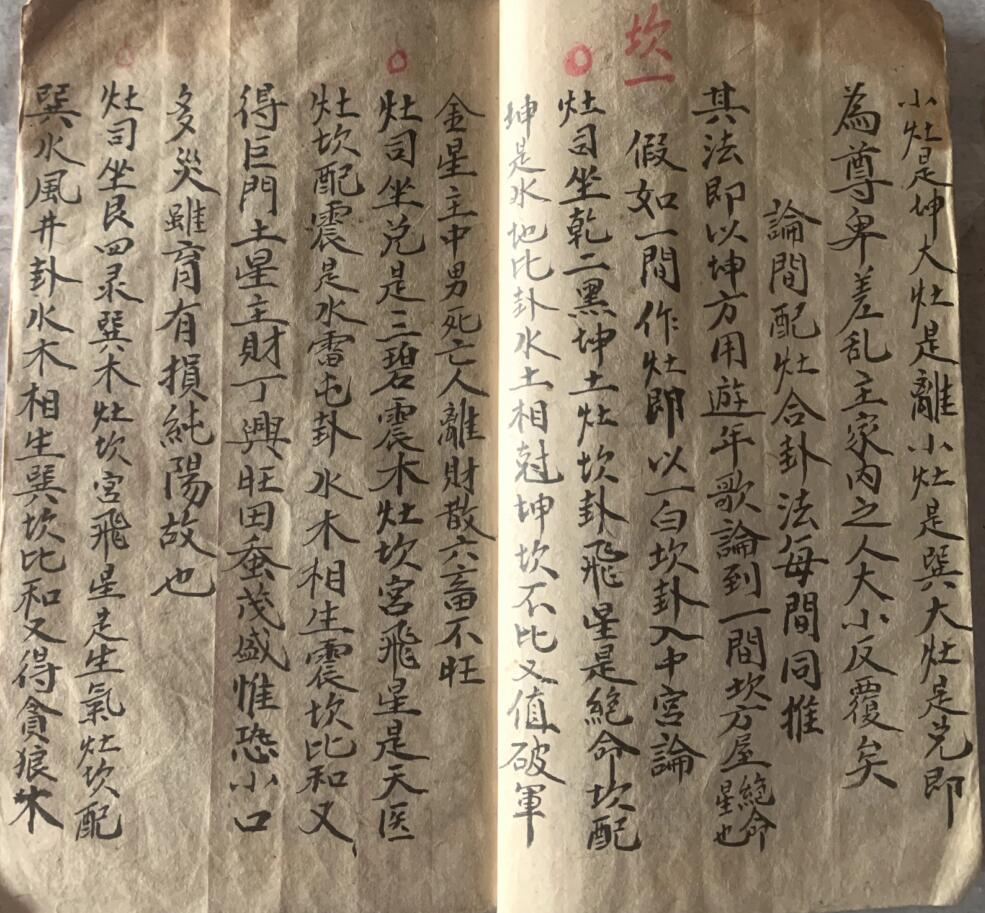 小灶是坤大灶是離小灶是巽大灶是兑即
為尊卑差乱主家内之人大小反覆矣
論間配灶合卦法每間同推
其法即以坤方用遊年歌論到一間坎方屋絕命星也
坎一
假如一間作灶即以一白坎卦入中宮論
灶司坐乾二黑坤土灶坎卦飛星是絕命坎配
坤是水地比卦水土相尅坤坎不比又值破軍
金星主中男死亡人離財散六畜不旺
灶司坐兑是三碧震木灶坎宮飛星是天医
灶坎配震是水雷屯卦水木相生震坎比和又
得巨門土星主財丁興旺田蚕茂盛惟恐小口
多災雖育有損純陽故也
灶司坐艮四录巽木灶坎宮飛星是生氣灶坎配
巽水風井卦水木相生巽坎比和又得貪狼木